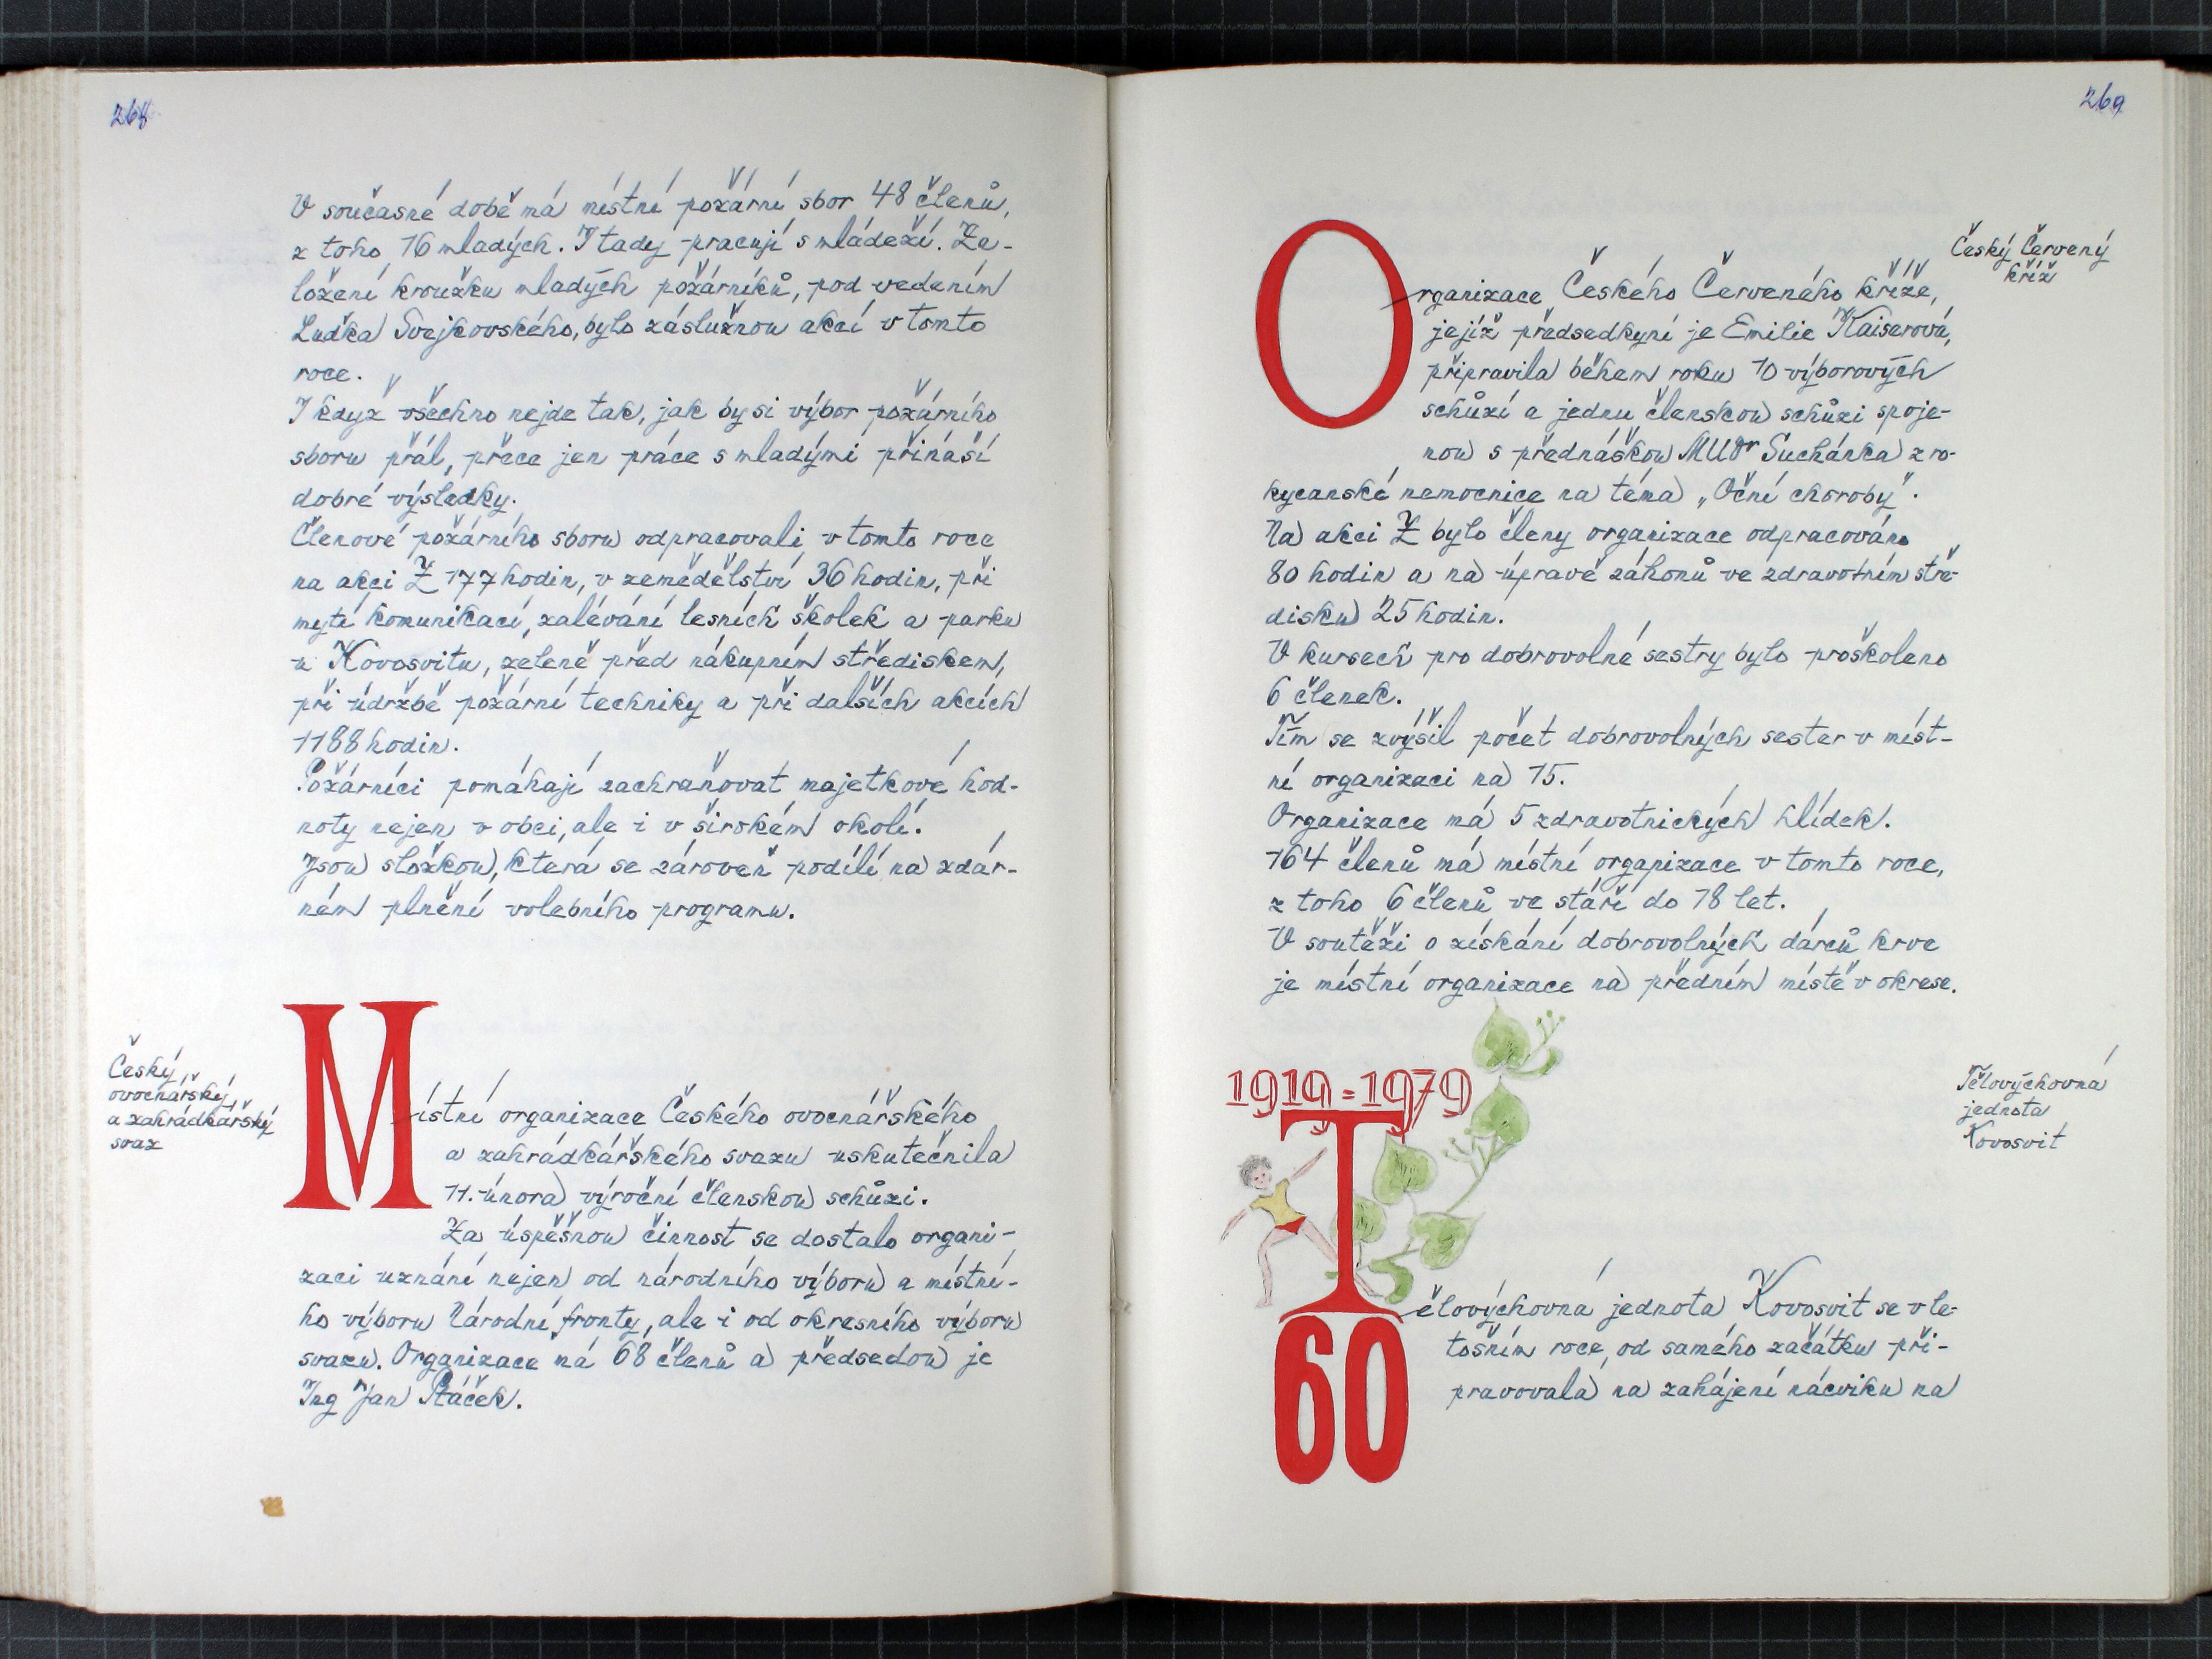 268
V současné době má místní požární sbor 48 členů,
z toho 16 mladých. I tady pracují s mládeží. Za-
ložení kroužku mladých požárníků, pod vedením
Luďka Svejkovského, bylo záslužnou akcí v tomto
roce.
I když všechno nejde tak, jak by si výbor požárního
sboru přál, přece jen práce s mladými přináší
dobré výsledky.
Členové požárního sboru odpracovali v tomto roce
na akci Z 177 hodin, v zemědělství 36 hodin, při
mytí komunikací, zalévání lesních školek a parku
u Kovosvitu, zeleně před nákupním střediskem,
při údržbě požární techniky a při dalších akcích
1188 hodin.
Požárníci pomáhají zachraňovat majetkové hod-
noty nejen v obci, ale i v širokém okolí.
Jsou složkou, která se zároveň podílí na zdár-
ném plnění volebního programu.
Český
ovocnářský
a zahrádkářský
svaz
Místní organizace Českého ovocnářského
a zahrádkářského svazu uskutečnila
11. února výroční členskou schůzi.
Za úspěšnou činnost se dostalo organi-
zaci uznání nejen od národního výboru a místní-
ho výboru Národní fronty, ale i od okresního výboru
svazu. Organizace má 68 členů a předsedou je
Ing Jan Ptáček.
269
Český Červený
kříž
Organizace Českého Červeného kříže,
jejíž předsedkyní je Emilie Kaiserová,
připravila během roku 10 výborových
schůzí a jednu členskou schůzi spoje-
nou s přednáškou MUDr Suchánka z ro-
kycanské nemocnice na téma „Oční choroby".
Na akci Z bylo členy organizace odpracováno
80 hodin a na úpravě záhonů ve zdravotním stře-
disku 25 hodin.
V kursech pro dobrovolné sestry bylo proškoleno
6 členek.
Tím se zvýšil počet dobrovolných sester v míst-
ní organizaci na 15.
Organizace má 5 zdravotnických hlídek.
164 členů má místní organizace v tomto roce,
z toho 6 členů ve stáří do 18 let.
V soutěži o získání dobrovolných dárců krve
je místní organizace na předním místě v okrese.
1919=1979
Tělovýchovná
jednota
Kovosvit
Tělovýchovná jednota Kovosvit se v le-
tošním roce, od samého začátku při-
pravovala na zahájení nácviku na
60